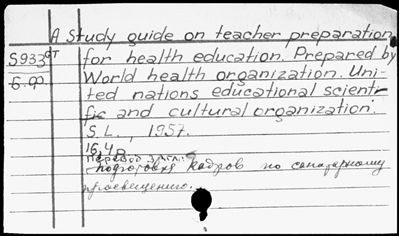 A Study guide on teacher preparation
S933 ст for health education. Prepared by
б.о. World health organization. Uni-
ted nations educational scienti-
fic and cultural organization.
S. L., 1957.
16,4 p
Перевод загл:
подготовка кадров по санитарному
просвещению.